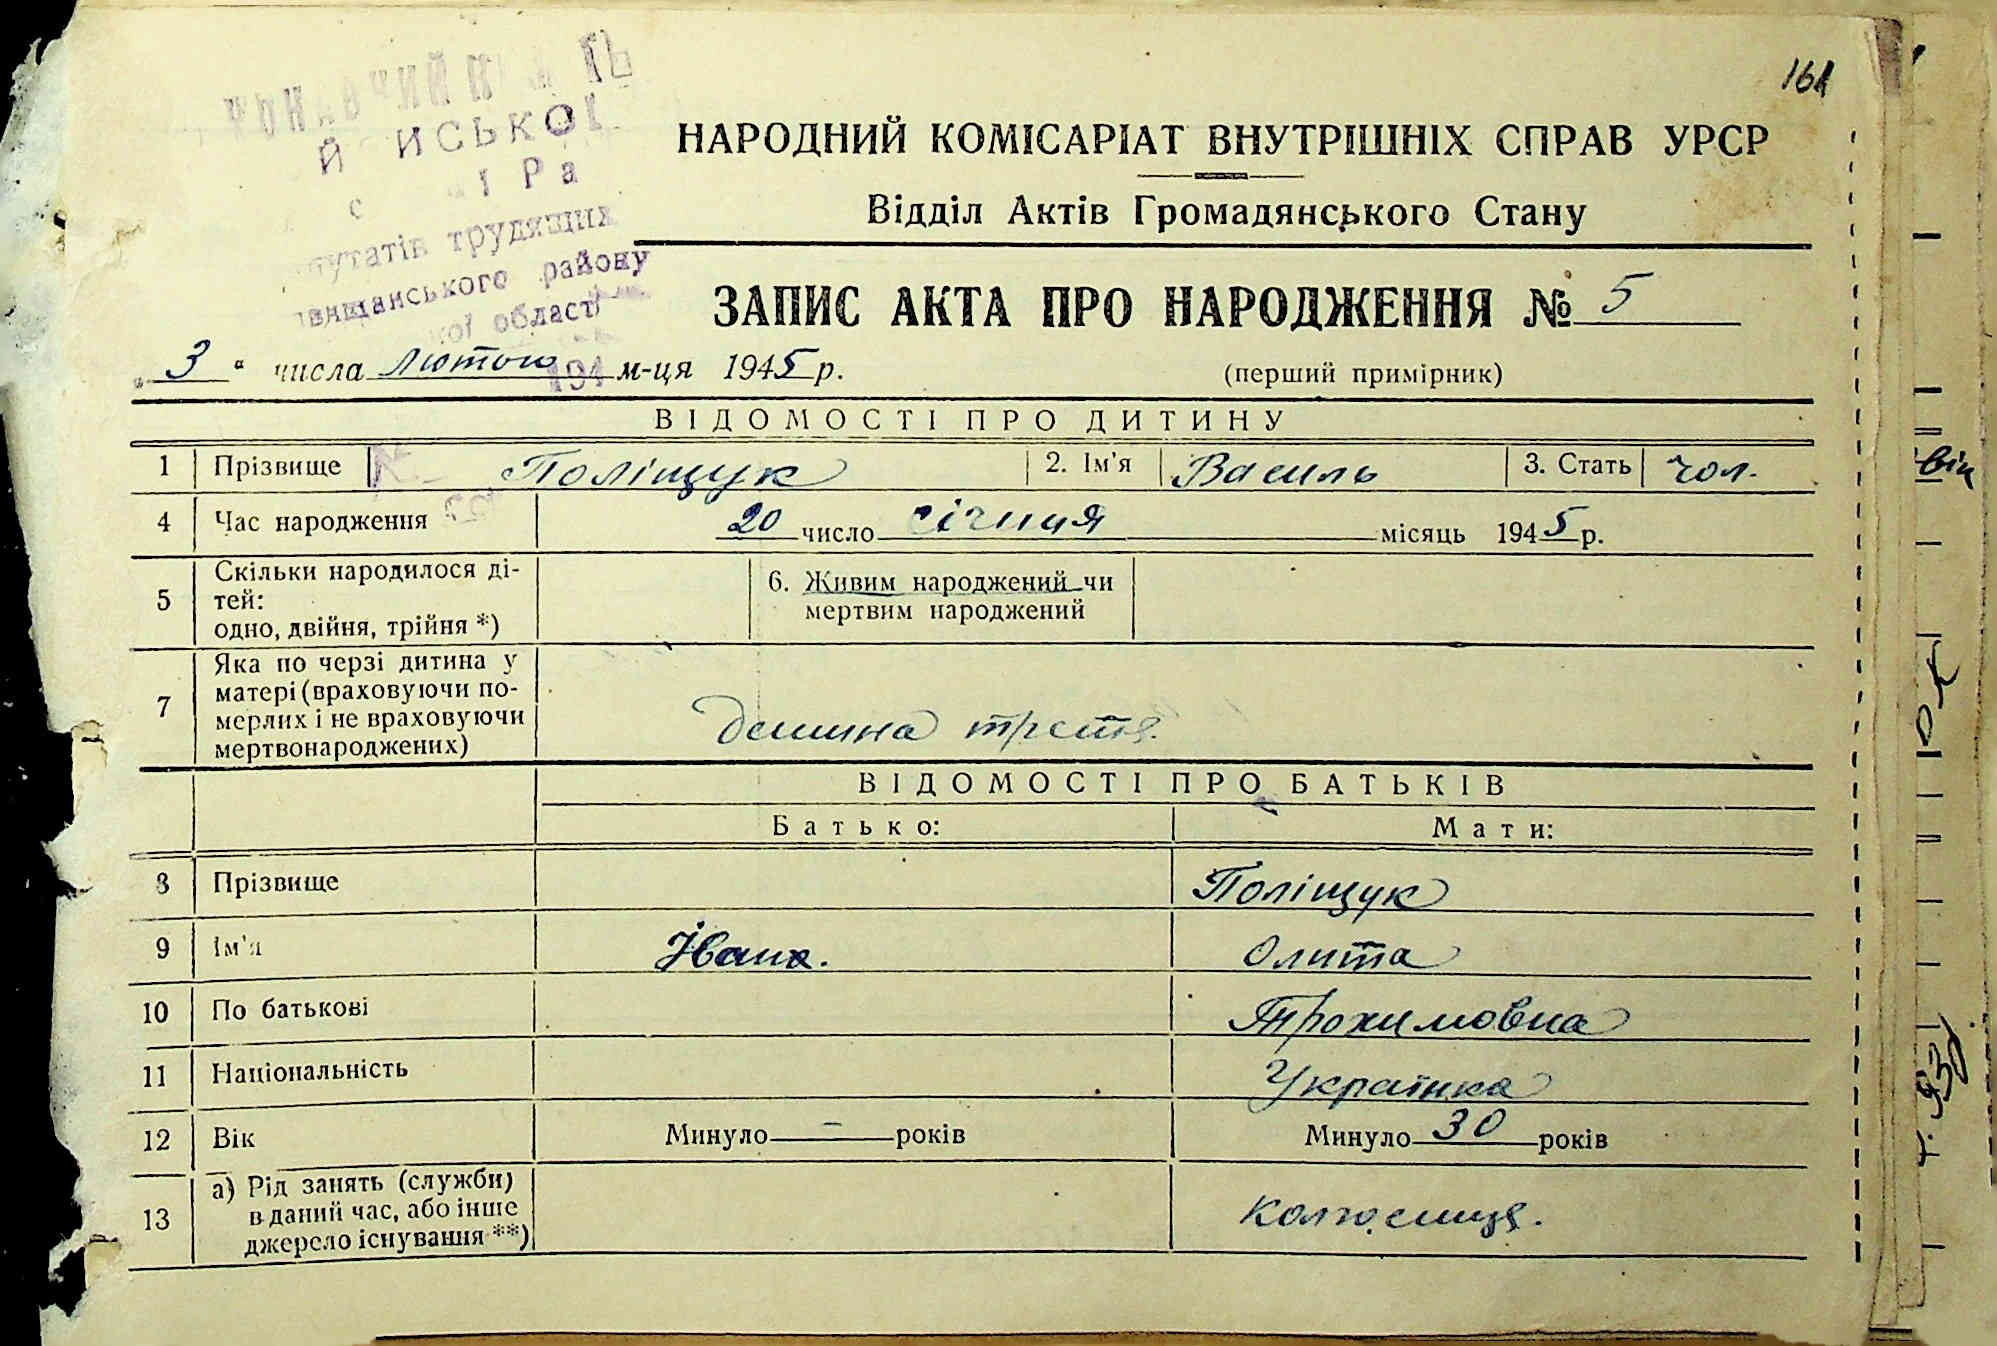 161
НАРОДНИЙ КОМІСАРІАТ ВНУТРІШНІХ СПРАВ УРСР
Відділ Актів Громадянського Стану
трудящих
району
області
ЗАПИС АКТА ПРО НАРОДЖЕННЯ № 5
„ 3 “ числа лютого м-ця 1945 р.
(перший примірник)
ВІДОМОСТІ ПРО ДИТИНУ
1 Прізвище Поліщук 2. Ім'я Василь 3. Стать чол.
4 Час народження 20 число січня місяць 1945 р.
5 Скільки народилося ді-
тей:
одно, двійня, трійня *)
6. Живим народжений чи
мертвим народжений
7 Яка по черзі дитина у
матері (враховуючи по-
мерлих і не враховуючи
мертвонароджених)
дитина третя.
ВІДОМОСТІ ПРО БАТЬКІВ
Батько: Мати:
8 Прізвище Поліщук
9 Ім'я Іван. Олита
10 По батькові Трохимовна
11 Національність Українка
12 Вік Минуло – років Минуло 30 років
13 а) Рід занять (служби)
в даний час, або інше
джерело існування **)